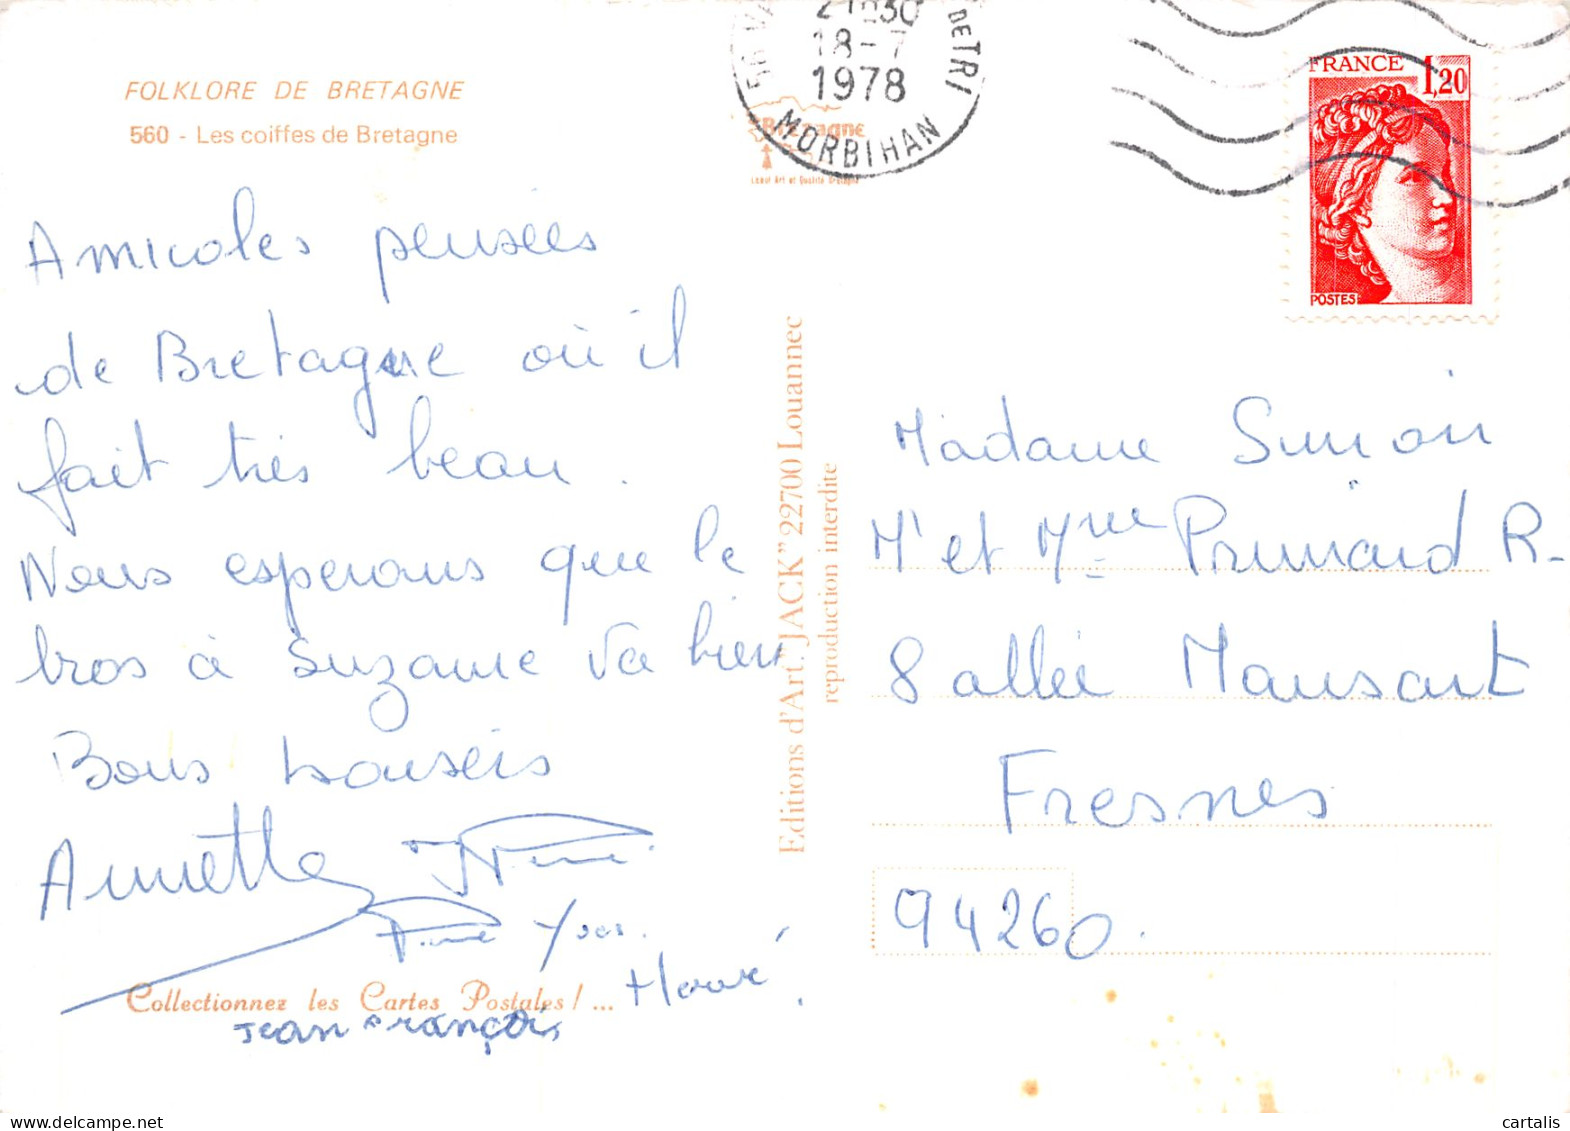 FOLKLORE DE BRETAGNE
560 - Les coiffes de Bretagne
Amicales pensées
de Bretagne où il
fait très beau.
Nous esperons que le
bras à Suzanne va bien.
Bons baisers
Annette
Yves.
Hervé
Jean François
Collectionnez les Cartes Postales ! ...
Editions d'Art "JACK" 22700 Louannec
reproduction interdite
21 30
18-7
1978
MORBIHAN
Bretagne
FRANCE 1,20
POSTES
Madame Simon
Mr et Mme Primard R.
8 allée Mansart
Fresnes
94260.
cartalis